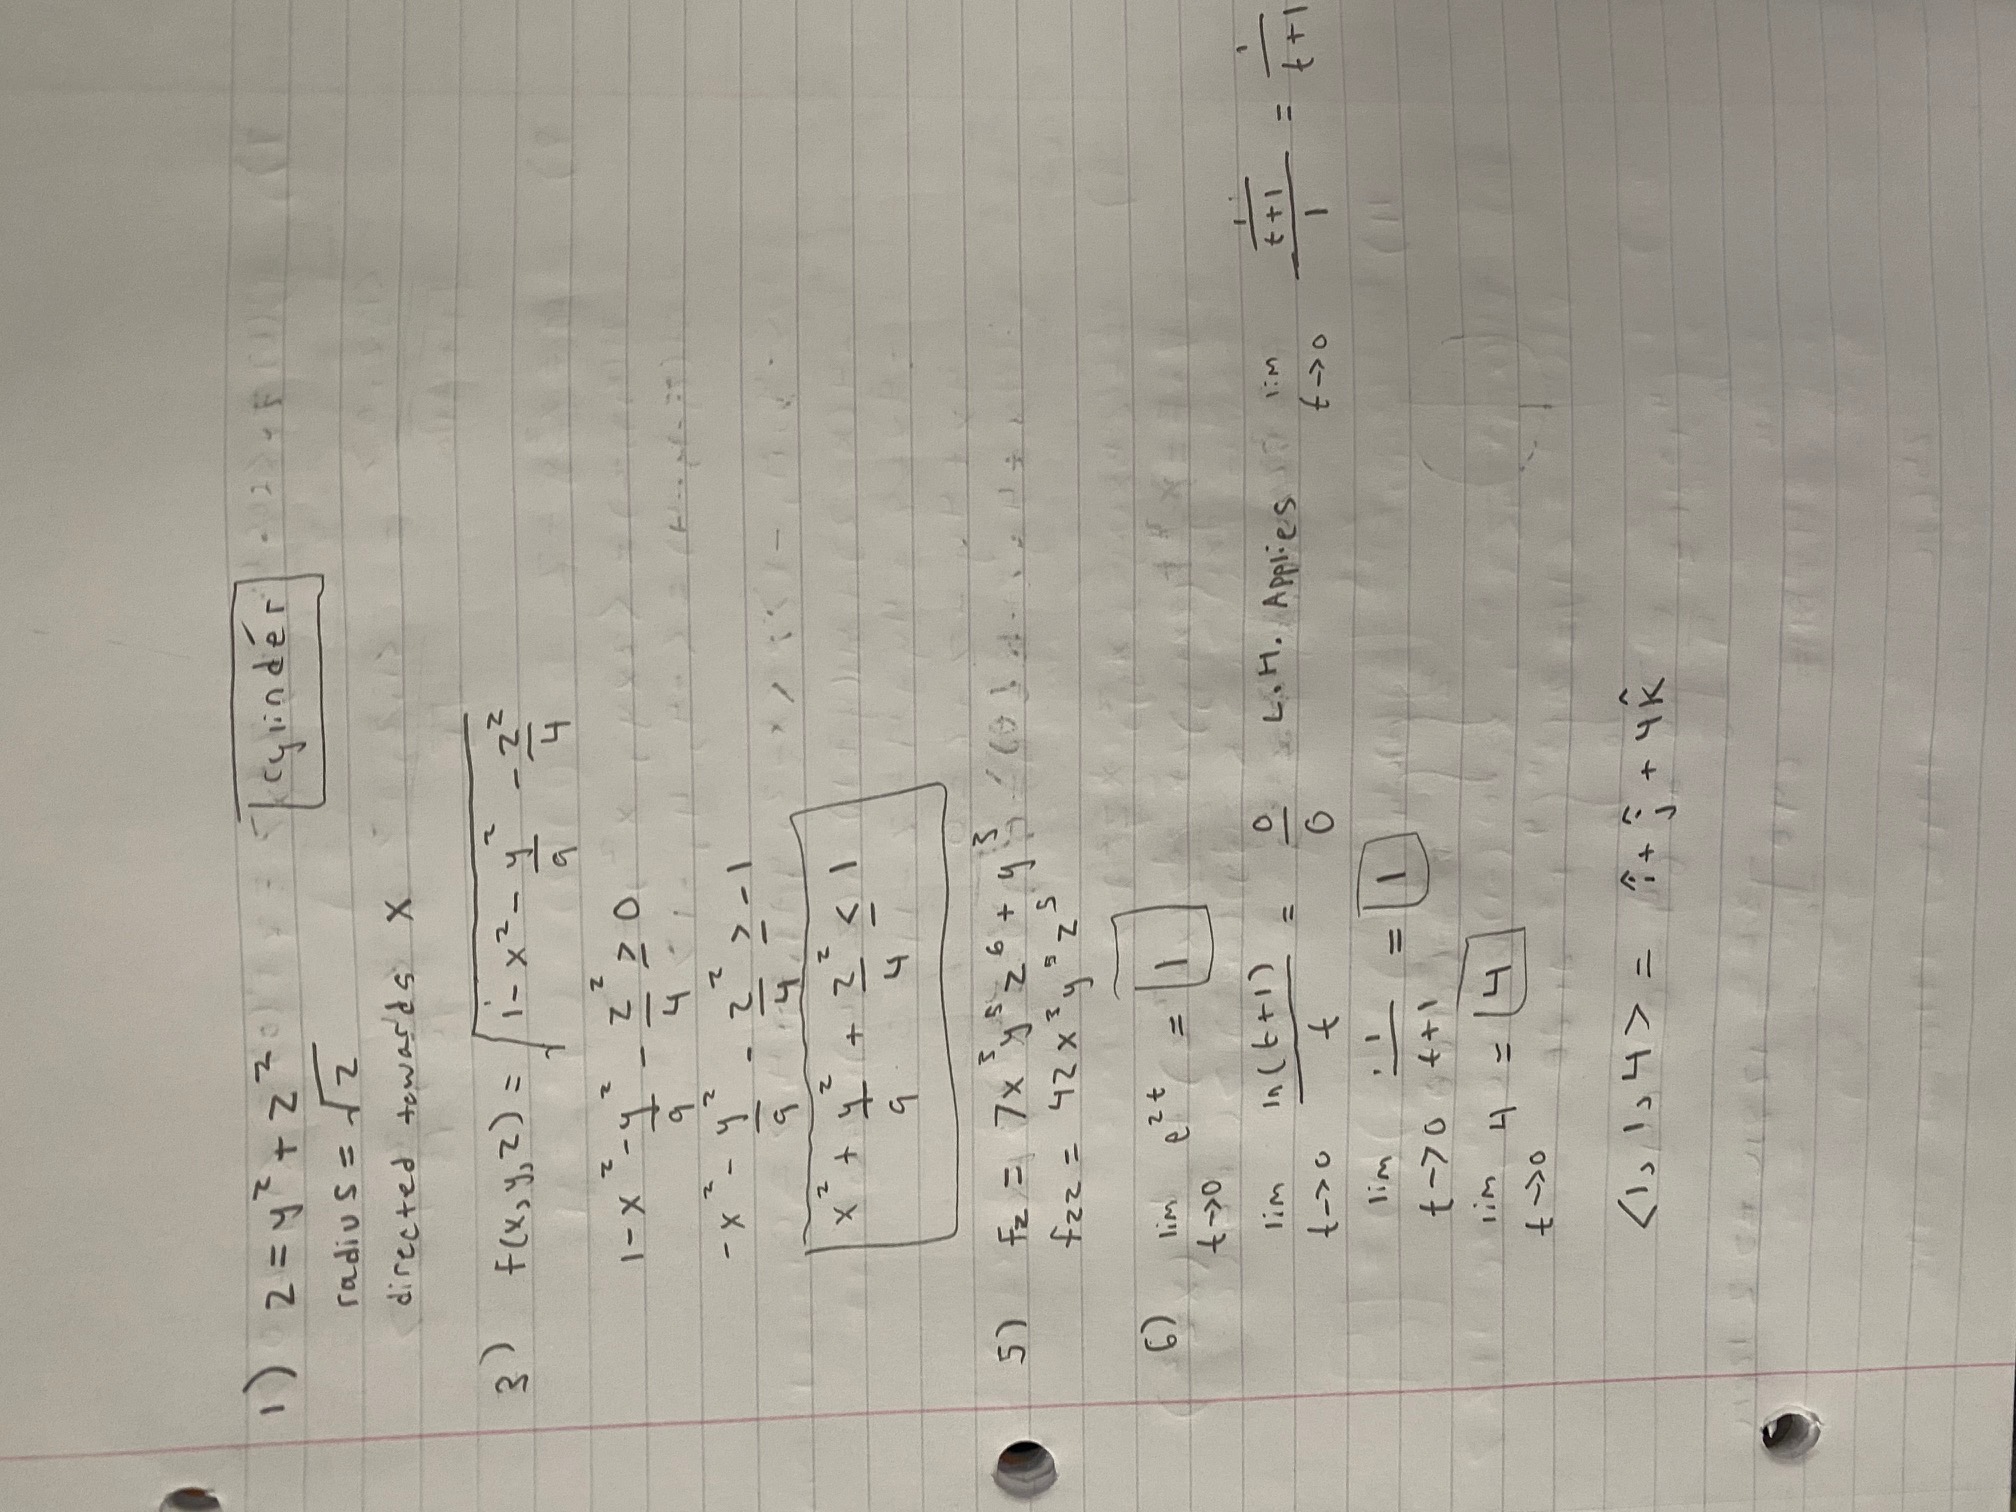 1) 2 = y² + z² cylinder
radius = √2
directed towards x
3) f(x,y,z) = √(1 - x² - y²/9 - z²/4)
1 - x² - y²/9 - z²/4 ≥ 0
-x² - y²/9 - z²/4 ≥ -1
x² + y²/9 + z²/4 ≤ 1
5) fz = 7x³y⁵z⁶ + y³
fzz = 42x³y⁵z⁵
6) lim t->0 e^(2t) = 1
lim t->0 ln(t+1)/t = 0/0 L.H. Applies lim t->0 (1/(t+1))/1 = 1/(t+1)
lim t->0 1/(t+1) = 1
lim t->0 4 = 4
<1, 1, 4> = î + ĵ + 4k̂